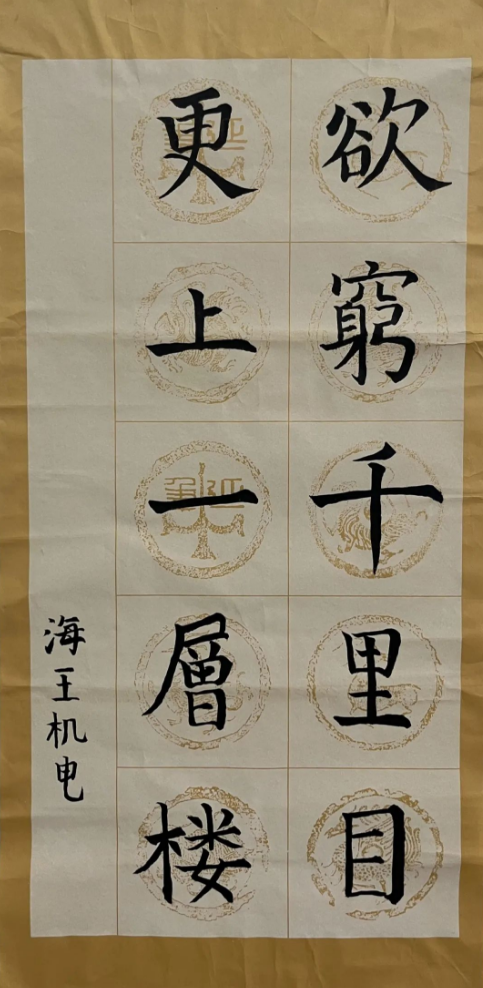 欲窮千里目
更上一層楼
海王机电